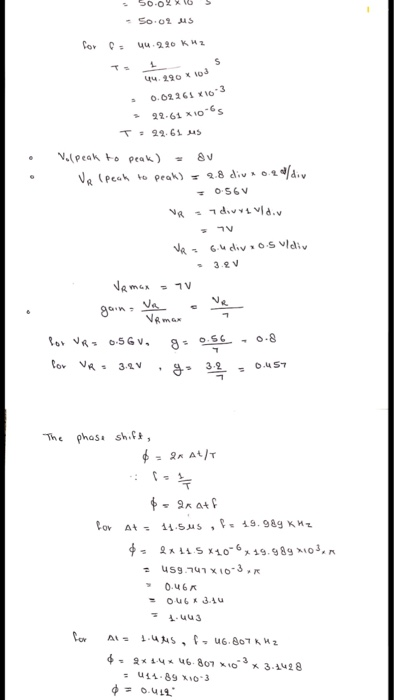 = 50.02 x 10 s
= 50.02 µs
for f = 44.220 KHz
T = 1 / 44.220 x 10³ s
= 0.02261 x10⁻³
= 22.61 x10⁻⁶s
T = 22.61 µs
• V₀(peak to peak) = 8V
• VR (peak to peak) = 2.8 div x 0.2 V/div
= 0.56V
VR = 7 div x 1 V/div
= 7V
VR = 6.4 div x 0.5 V/div
= 3.2 V
VRmax = 7V
• gain = VR / VRmax = VR / 7
for VR = 0.56V, g = 0.56 / 7 = 0.8
for VR = 3.2V, g = 3.2 / 7 = 0.457
The phase shift,
ϕ = 2π Δt/T
∵ f = 1 / T
ϕ = 2π Δt f
for Δt = 11.5µs, f = 19.989 KHz
ϕ = 2 x 11.5 x10⁻⁶ x 19.989 x10³ x π
= 459.747 x10⁻³ x π
= 0.46π
= 0.46 x 3.14
= 1.443
for Δt = 1.4µs, f = 46.807 KHz
ϕ = 2 x 1.4 x 46.807 x10⁻³ x 3.1428
= 411.89 x10⁻³
ϕ = 0.412°